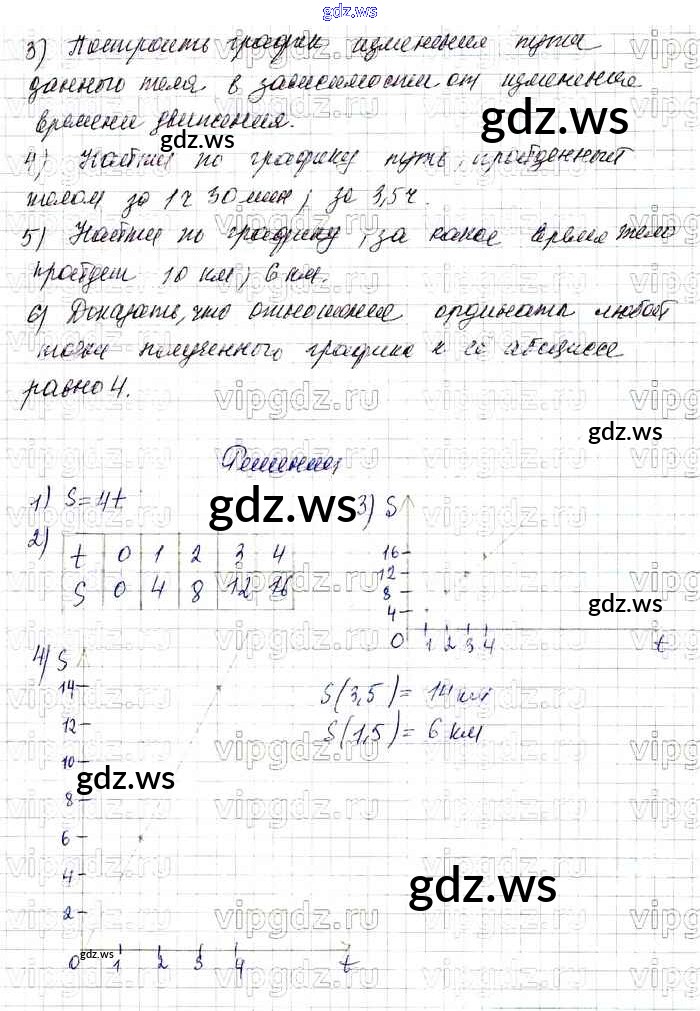 gdz.ws
3) Построить график изменения пути
данного тела в зависимости от изменения
времени движения.
gdz.ws
gdz.ws
4) Найти по графику путь, пройденный
телом за 1ч 30мин; за 3,5ч.
5) Найти по графику, за какое время тело
пройдет 10 км; 6 км.
6) Доказать, что отношение ординаты любой
точки полученного графика к её абсциссе
равно 4.
gdz.ws
Решение
1) S=4t
gdz.ws
3) S
2)
t 0 1 2 3 4
S 0 4 8 12 16
16
12
8
4
0 1 2 3 4 t
gdz.ws
4) S
14
12
10
8
6
4
2
0 1 2 3 4 t
S(3,5) = 14 км
S(1,5) = 6 км
gdz.ws
gdz.ws
gdz.ws
vipgdz.ru